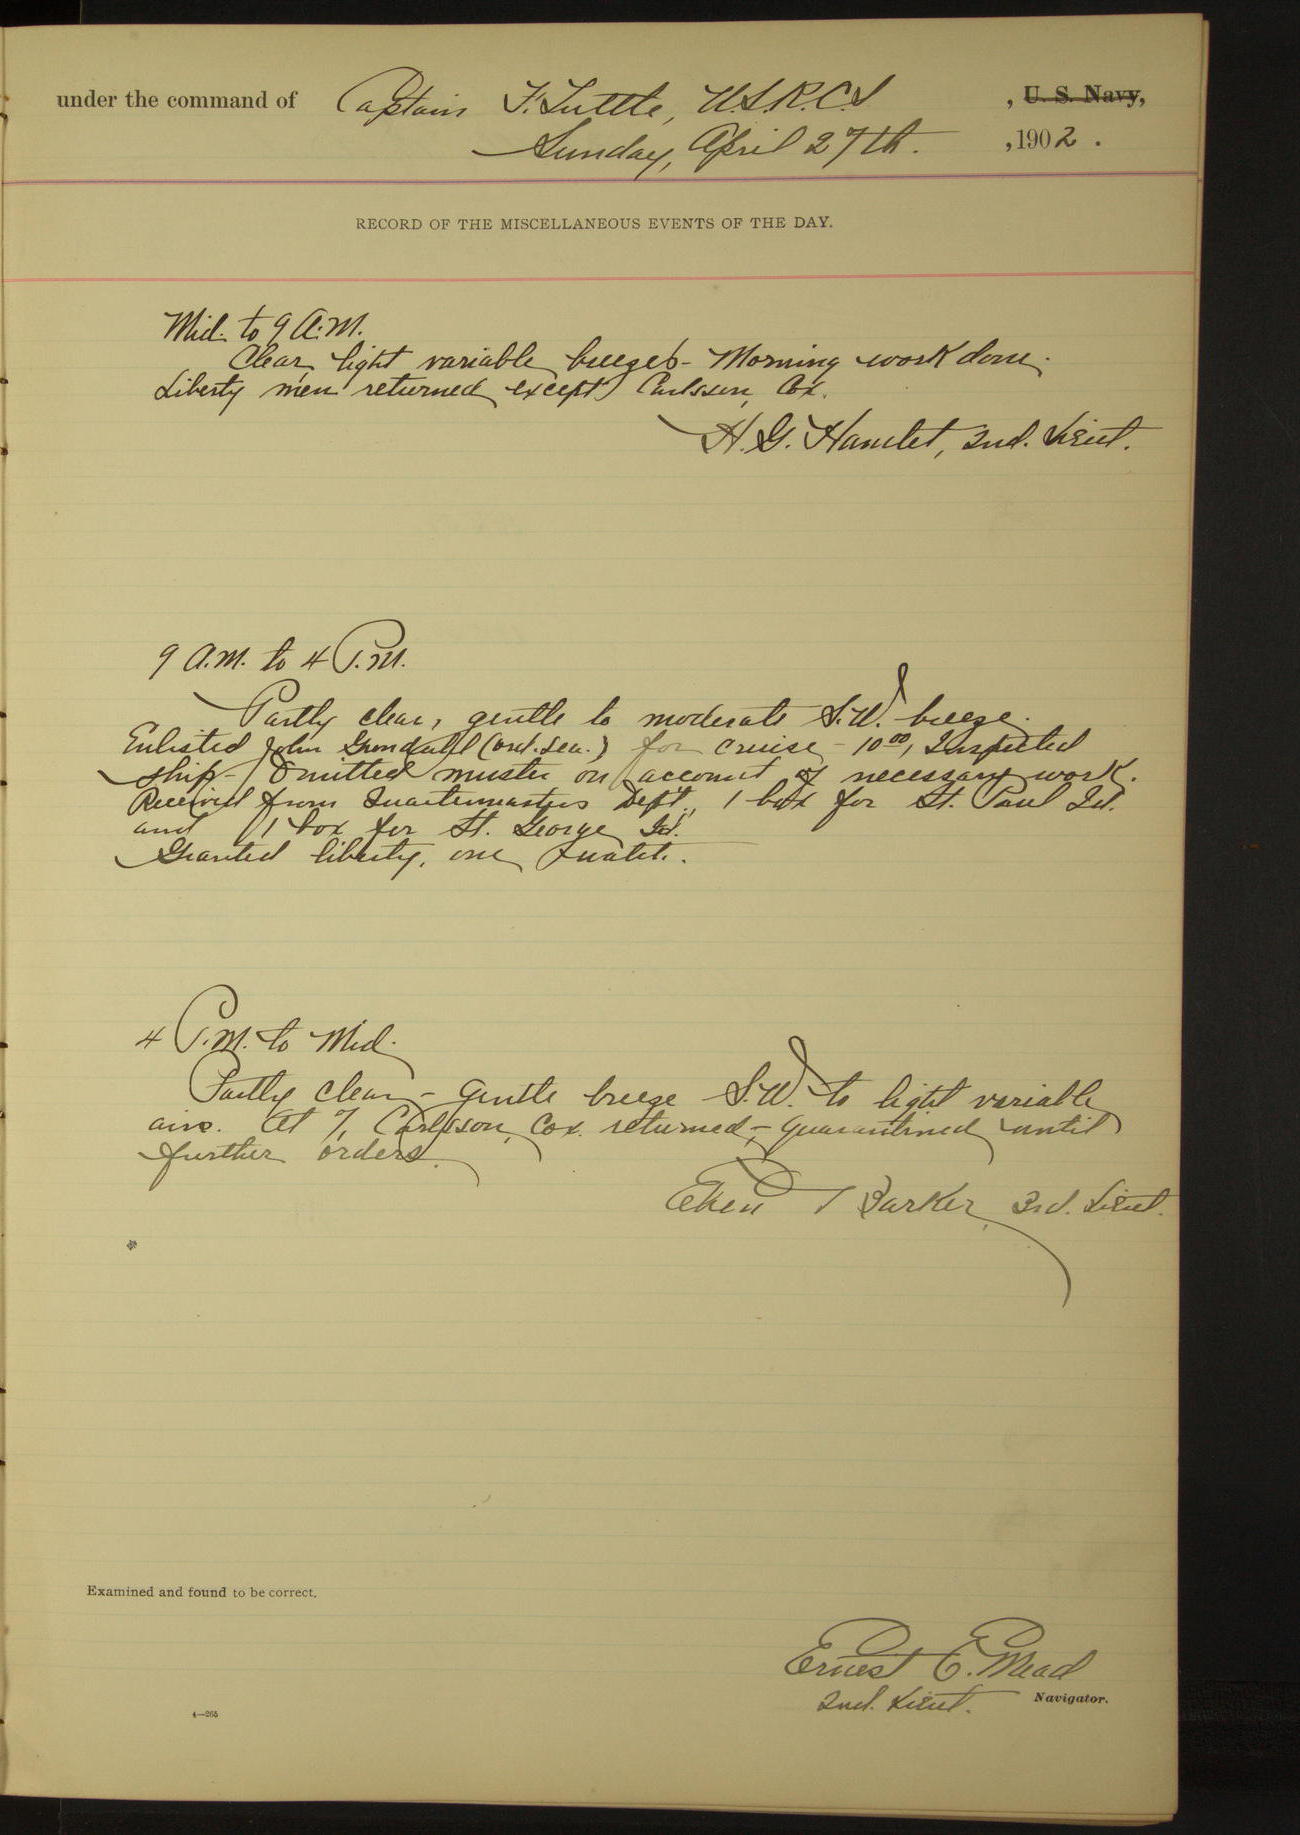 under the command of Captain F. Tuttle, U.S.R.C.S , U. S. Navy,
Sunday, April 27th. , 1902.
RECORD OF THE MISCELLANEOUS EVENTS OF THE DAY.
Mid. to 9 A.M.
Clear, light variable breezes - Morning work done.
Liberty men returned except Carlsson, Cox.
H. G. Hamlet, 2nd. Lieut.
9 A.M. to 4 P.M.
Partly clear, gentle to moderate S.W. breeze.
Enlisted John Grondahl (ord. sea.) for cruise - 10 00, Inspected
ship - Omitted muster on account of necessary work.
Received from Quartermasters Dept., 1 box for St. Paul Isd.
and 1 box for St. George Isd.
Granted liberty, one watch.
4 P.M. to Mid.
Partly clear - gentle breeze S.W. to light variable
airs. At 7, Carlsson, Cox. returned, - quarantined until
further orders.
Eben Barker 3rd. Lieut.
Examined and found to be correct.
Ernest E. Mead
2nd. Lieut. Navigator.
4—265